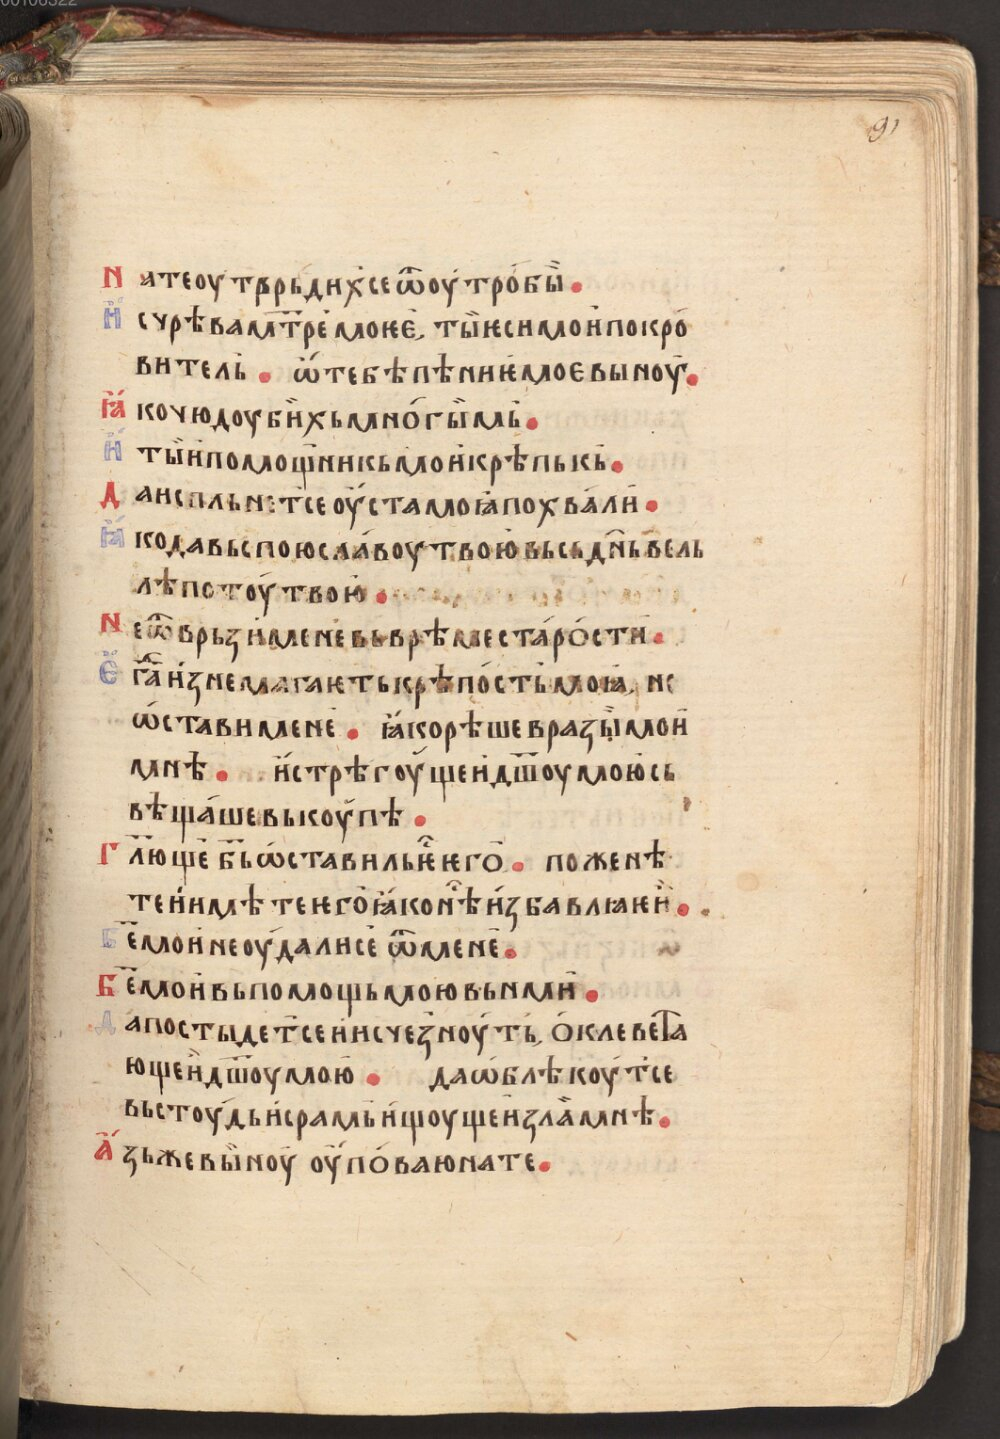 00106322
91
Натеоутврьдихсеѿоутробы.
И҆сурѣвамт҃ремоѥ. тыѥсимоипокро
витель. ѿтебѣпѣниѥмоѥвыноу.
Ꙗ҆кочюдоубихьмногымь.
И҆тыипомощникьмоикрѣпькь.
Даиспльнетсеоустамоꙗпохвали.
Ꙗ҆кодавьспоюславоутвоювьсьдн҃ьвель
лѣпотоутвою.
Неѿврьзименевьврѣместарости.
Е҆гдаизнемагаѥтькрѣпостьмоꙗ, не
ѡставимене. ꙗкорѣшевразымои
мнѣ. истрѣгоущеидш҃оумоюсь
вѣщашевькоупѣ.
Гл҃ющеб҃ьѡставильѥѥго. поженѣ
теиимѣтеѥгоꙗконѣизбавлꙗѥи.
Б҃емоинеоудалисеѿмене.
Б҃емоивьпомощьмоювьнми.
Дапостыдетсеиисчезноуть, оклевета
ющеидш҃оумою. даѡблѣкоутсе
вьстоудьисрамьищоущеизламнѣ.
А҆зьжевыноу оуповаюнате.